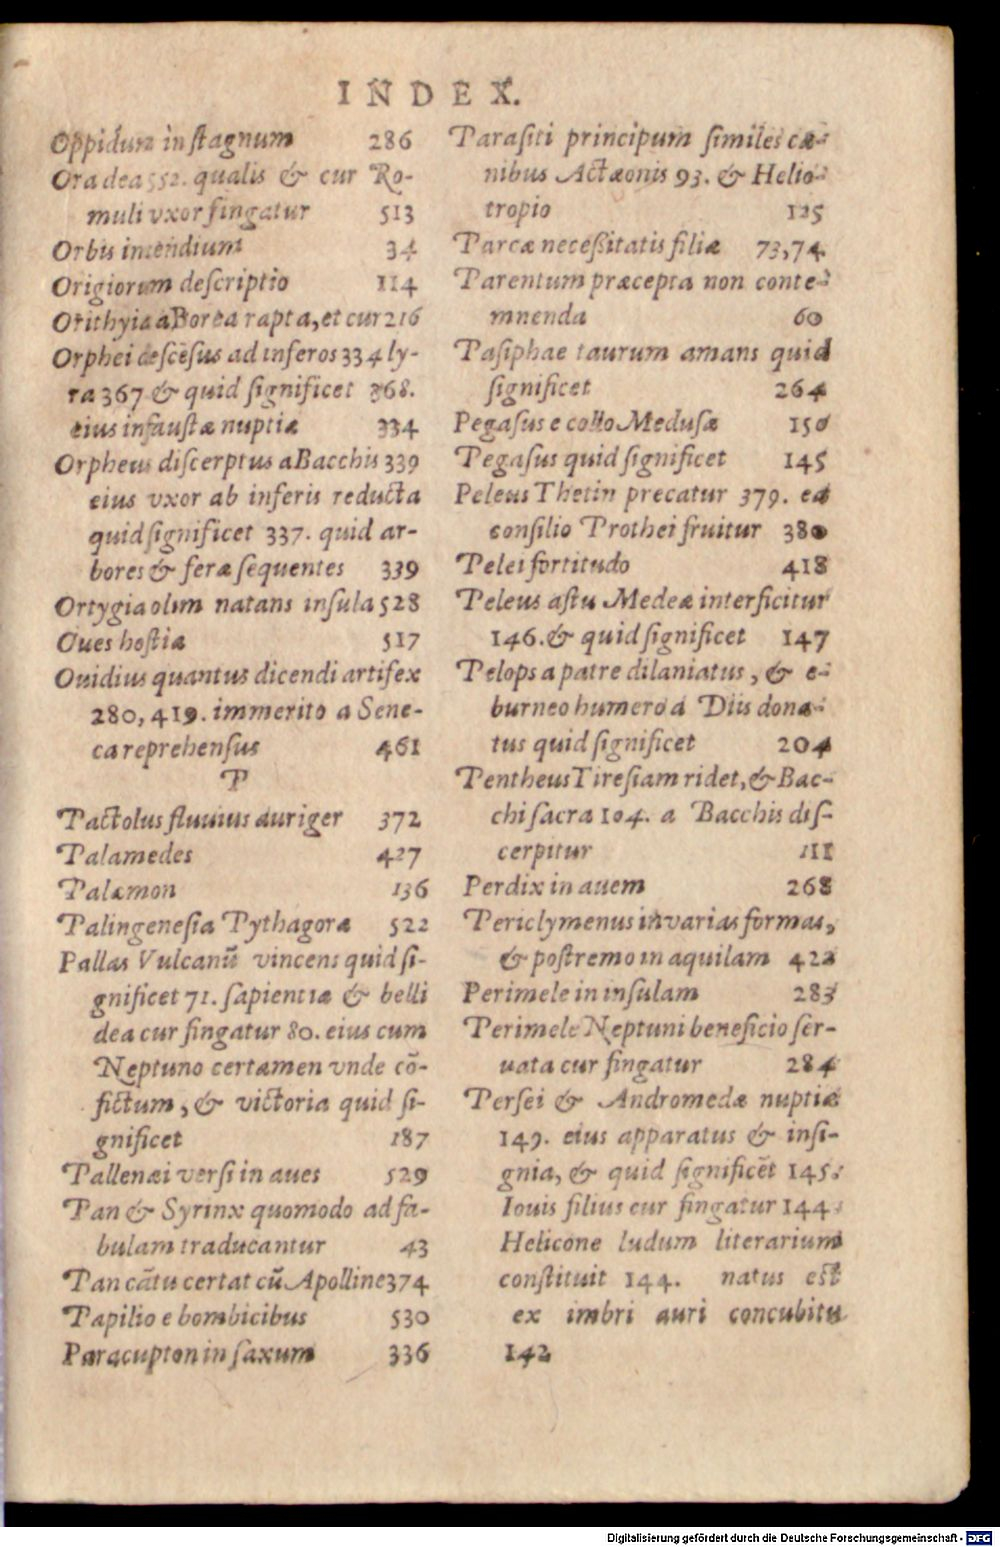 INDEX.
Oppidum in ſtagnum 286
Ora dea 552. qualis & cur Ro-
muli vxor fingatur 513
Orbis incendium 34
Origiorum deſcriptio 114
Orithyia a Borea rapta, et cur 216
Orphei deſcēſus ad inferos 334 ly-
ra 367 & quid ſignificet 368.
eius infauſtæ nuptiæ 334
Orpheus diſcerptus a Bacchis 339
eius vxor ab inferis reducta
quid ſignificet 337. quid ar-
bores & feræ ſequentes 339
Ortygia olim natans inſula 528
Oues hoſtia 517
Ouidius quantus dicendi artifex
280, 419. immerito a Sene-
ca reprehenſus 461
P
Pactolus fluuius auriger 372
Palamedes 427
Palæmon 136
Palingeneſia Pythagoræ 522
Pallas Vulcanū vincens quid ſi-
gnificet 71. ſapientiæ & belli
dea cur fingatur 80. eius cum
Neptuno certamen vnde cō-
fictum, & victoria quid ſi-
gnificet 187
Pallenæi verſi in aues 529
Pan & Syrinx quomodo ad fa-
bulam traducantur 43
Pan cātu certat cū Apolline 374
Papilio e bombicibus 530
Paracupton in ſaxum 336
Paraſiti principum ſimiles ca-
nibus Actæonis 93. & Helio-
tropio 125
Parcæ neceßitatis filiæ 73,74
Parentum præcepta non conte-
mnenda 60
Paſiphae taurum amans quid
ſignificet 264
Pegaſus e collo Meduſæ 150
Pegaſus quid ſignificet 145
Peleus Thetin precatur 379. ea
conſilio Prothei fruitur 380
Pelei fortitudo 418
Peleus aſtu Medeæ interficitur
146. & quid ſignificet 147
Pelops a patre dilaniatus, & e-
burneo humero a Diis dona-
tus quid ſignificet 204
Pentheus Tireſiam ridet, & Bac-
chi ſacra 104. a Bacchis diſ-
cerpitur 111
Perdix in auem 268
Periclymenus in varias formas,
& poſtremo in aquilam 422
Perimele in inſulam 283
Perimele Neptuni beneficio ſer-
uata cur fingatur 284
Perſei & Andromedæ nuptiæ
149. eius apparatus & inſi-
gnia, & quid ſignificēt 145.
Iouis filius cur fingatur 144
Helicone ludum literarium
conſtituit 144. natus eſt
ex imbri auri concubitu
142
Digitalisierung gefördert durch die Deutsche Forschungsgemeinschaft - DFG